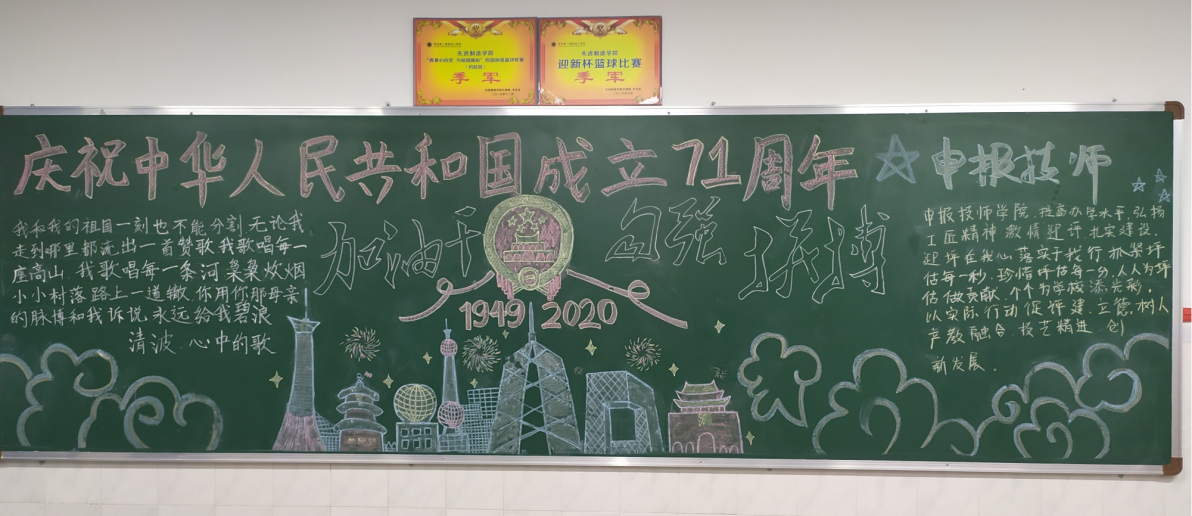 先进制造学院
季军
先进制造学院
迎新杯篮球比赛
季军
庆祝中华人民共和国成立71周年
申报技师
我和我的祖国一刻也不能分割无论我
走到哪里都流出一首赞歌我歌唱每一
座高山 我歌唱每一条河 袅袅炊烟
小小村落路上一道辙 你用你那母亲
的脉博和我诉说 永远给我碧浪
清波 心中的歌
加油干
自强
拼搏
1949 2020
申报技师学院,提高办学水平,弘扬
工匠精神 激情迎评 扎实建设.
迎评在我心 落实于我行 抓紧评
估每一秒,珍惜评估每一分,人人为评
估做贡献,个个为学校添光彩,
以实际行动促评建 立德树人
产教融合 技艺精进 创
新发展.